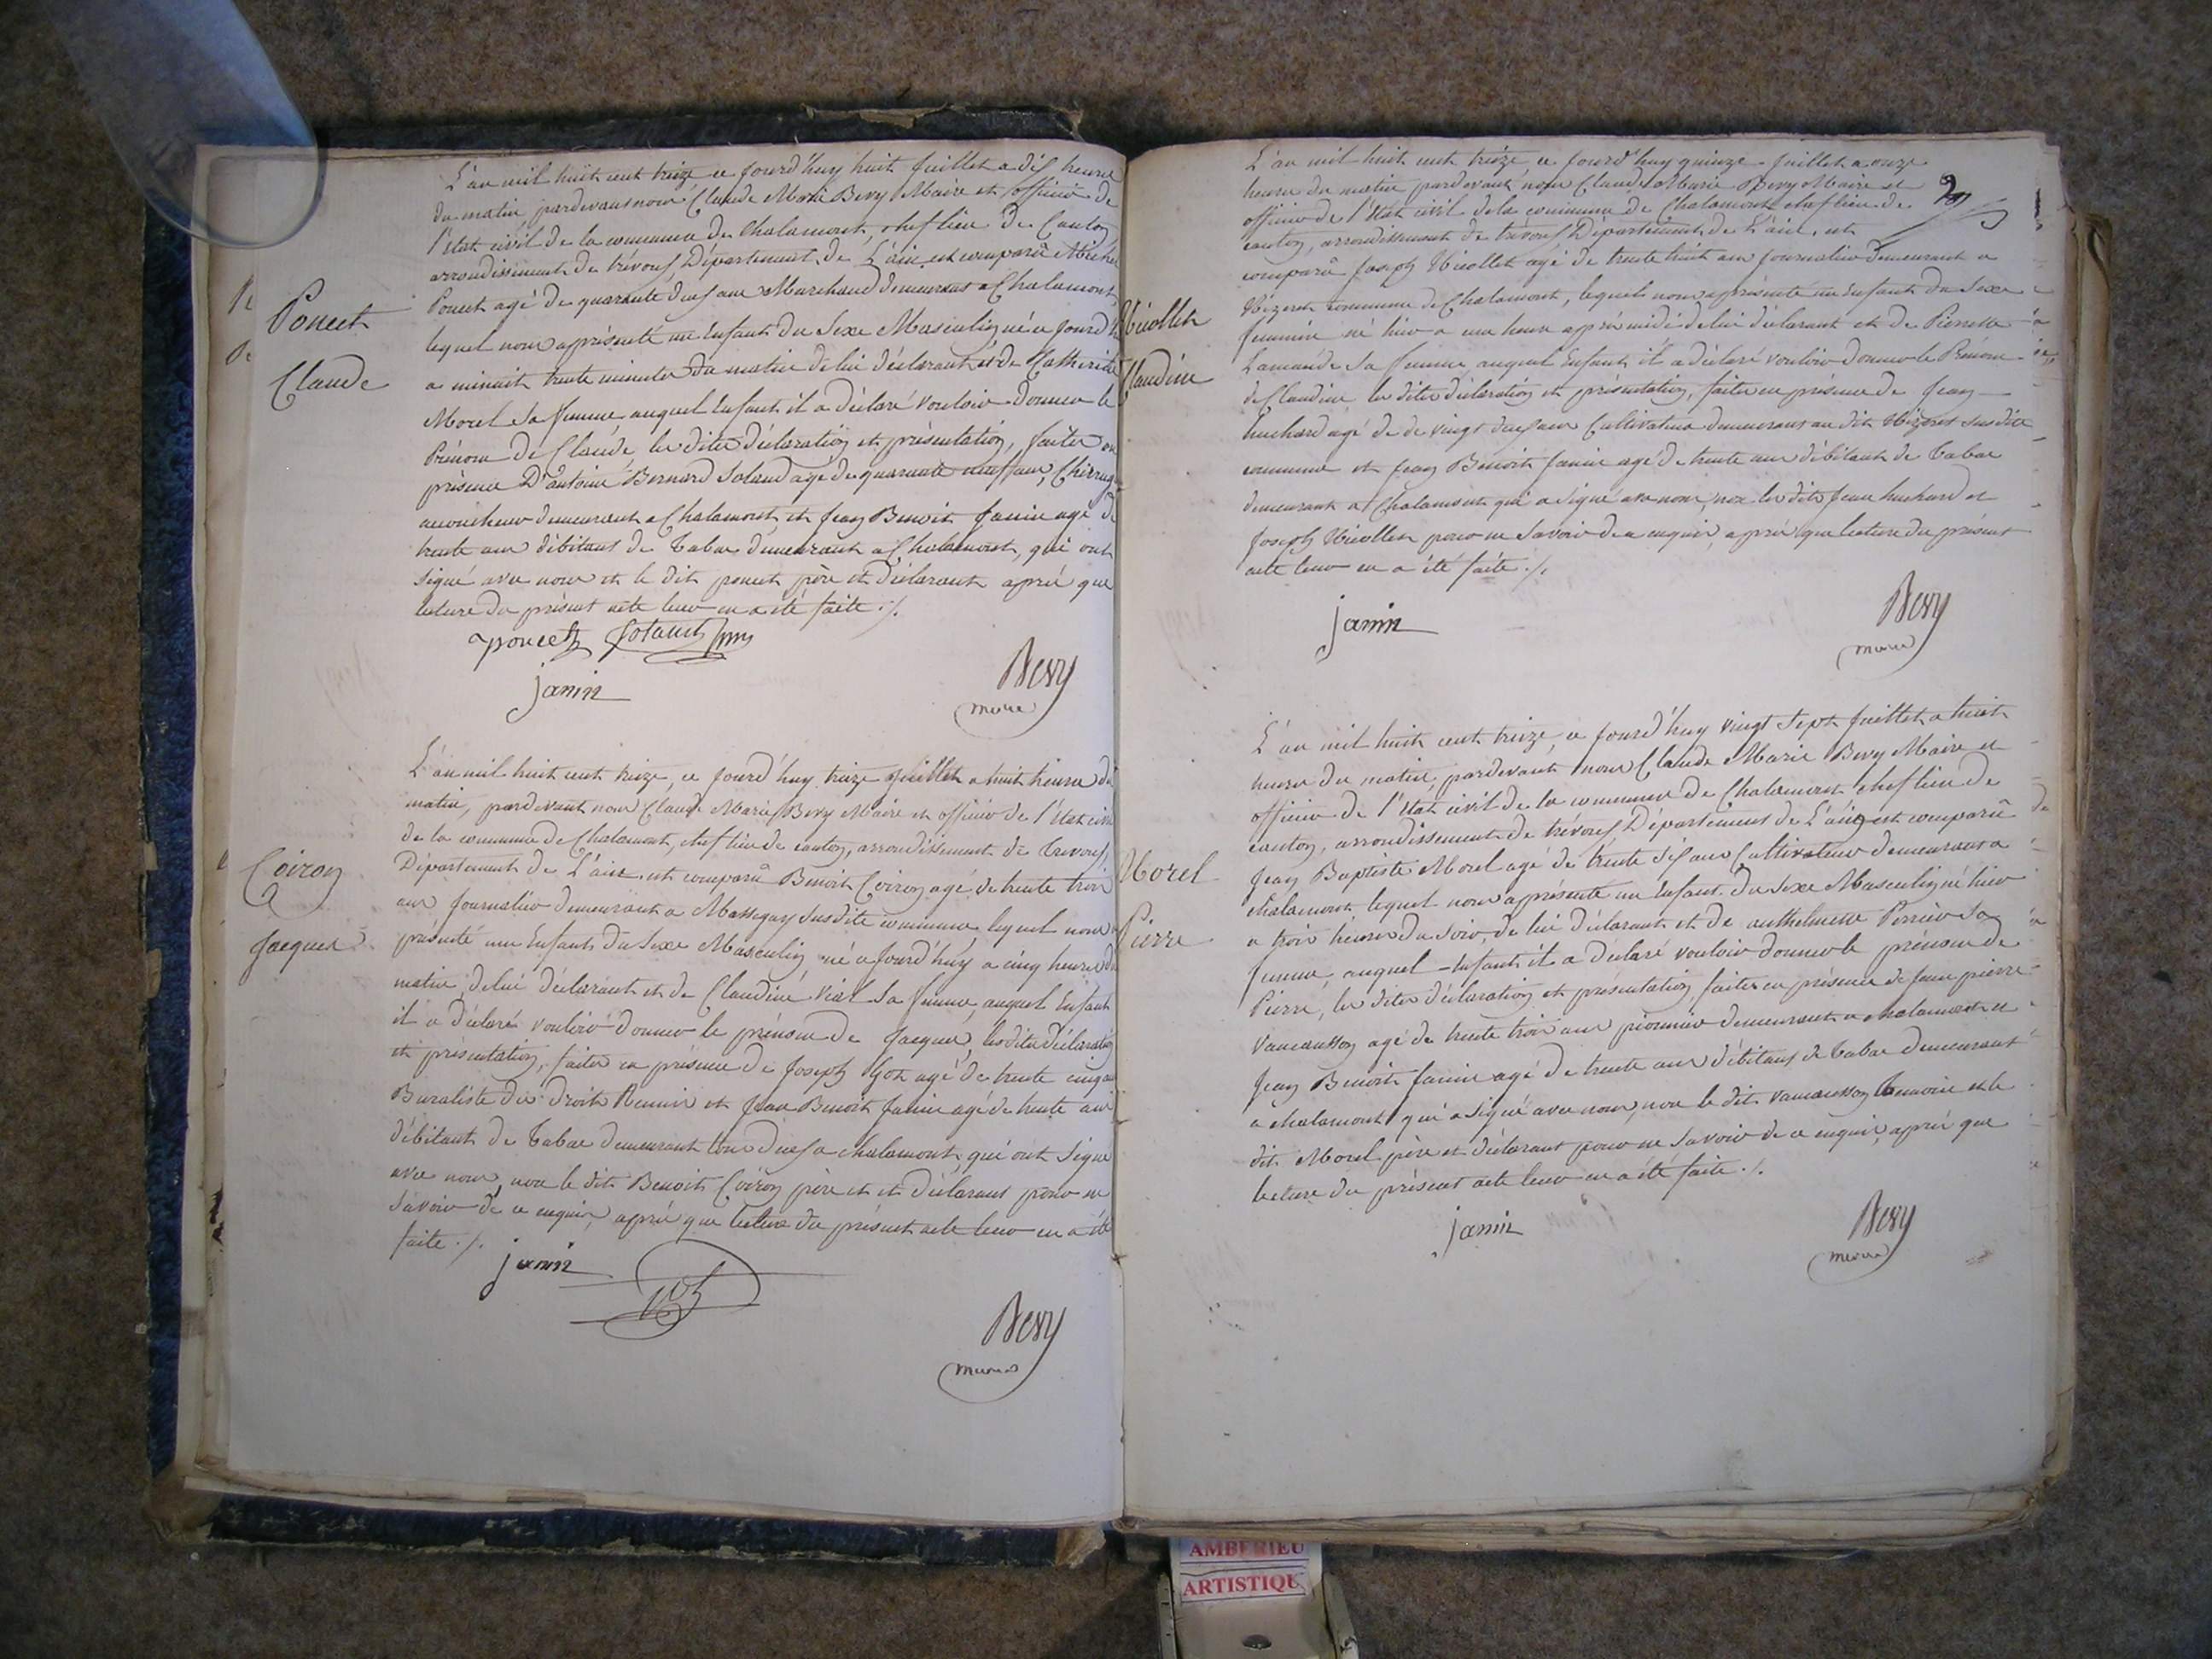 Poncet
Claude
L'an mil huit cent treize ce jourd'huy huit juillet a dix heure
du matin pardevant nous Claude Marie Bevy Maire et officier de
l'état civil de la commune de Chalamont, chef lieu de Canton
arrondissement de trévoux Département de L'ain est comparu Michel
Poncet agé de quarante deux ans Marchand demeurant a Chalamont
lequel nous a présenté un Enfant du Sexe Masculin né ce jourd'
a minuit trente minutes du matin de lui déclarant et de Catherine
Morel Sa femme, auquel Enfant il a déclaré vouloir donner le
Prénom de Claude, les dites déclaration et présentation, faites en
présence D'antoine Bernard Soland agé de quarante neuf ans, Chirurg
accoucheur demeurant a Chalamont et Jean Benoit Janin agé de
trente ans débitant de Tabac demeurant a Chalamont, qui ont
Signé avec nous et le dit poncet père et Déclarant après que
lecture du présent acte leur en a été faite ./.
poncet
janin
Bevy
maire
Coiron
Jacques
L'an mil huit cent treize, ce jourd'huy treize Juillet a huit heures du
matin, pardevant nous Claude Marie Bevy Maire et officier de l'état civil
de la commune de Chalamont, chef lieu de canton, arrondissement de Trevoux,
Département de L'ain est comparu Benoit Coiron agé de trente trois
ans journalier demeurant a Massigny susdite commune lequel nous a
présenté un Enfant du Sexe Masculin né ce jourd'huy a cinq heures du
matin de lui déclarant et de Claudine Vial Sa femme, auquel Enfant
il a déclaré vouloir donner le prénom de Jacques, les dites déclaration
et présentation, faites en présence de Joseph Got agé de trente cinq ans
Buraliste des droits Reunis et Jean Benoit Janin agé de trente ans
débitant de Tabac demeurant tous deux a chalamont, qui ont Signé
avec nous, non le dit Benoit Coiron père et et déclarant pour ne
Savoir de ce enquis, après que lecture du présent acte leur en a été
faite ./.
janin
Got
Bevy
maire
Nicollet
Claudine
L'an mil huit cent treize ce jourd'huy quinze Juillet a onze
heures du matin pardevant nous Claude Marie Bevy Maire et
officier de l'état civil de la commune de Chalamont chef lieu de
canton, arrondissement de trévoux Département de L'ain, est
comparu Joseph Nicollet agé de trente huit ans journalier demeurant a
commune de Chalamont, lequel nous a présenté un Enfant du Sexe
feminin né hier a une heure après midi de lui déclarant et de Pierrette
Sa femme, auquel Enfant il a déclaré vouloir donner le Prénom
de Claudine les dites déclaration et présentation, faites en présence de Jean
huchard agé de de vingt deux ans Cultivateur demeurant au dit susdite
commune et Jean Benoit Janin agé de trente ans débitant de Tabac
demeurant a Chalamont qui a Signé avec nous, non les dits Jean huchard et
Joseph Nicollet pour ne Savoir de ce enquis, après que lecture du présent
acte leur en a été faite ./.
janin
Bevy
maire
Morel
Pierre
L'an mil huit cent treize, ce jourd'huy vingt Sept Juillet a huit
heures du matin, pardevant nous Claude Marie Bevy Maire et
officier de l'état civil de la commune de Chalamont chef lieu de
canton, arrondissement de trévoux Département de L'ain est comparu
Jean Baptiste Morel agé de trente Six ans Cultivateur demeurant a
chalamont lequel nous a présenté un Enfant du Sexe Masculin né hier
a trois heures du Soir, de lui déclarant et de anthelmette Perrier Sa
femme, auquel Enfant il a déclaré vouloir donner le prénom de
Pierre, les dites déclaration et présentation, faites en présence de Jean pierre
Vaucansson agé de trente trois ans demeurant a chalamont et
Jean Benoit Janin agé de trente ans débitant de Tabac demeurant
a chalamont qui a Signé avec nous, non le dit Vaucansson temoin et le
dit Morel père et déclarant pour ne Savoir de ce enquis, après que
lecture du présent acte leur en a été faite ./.
janin
Bevy
maire
AMBERIEU
ARTISTIQU